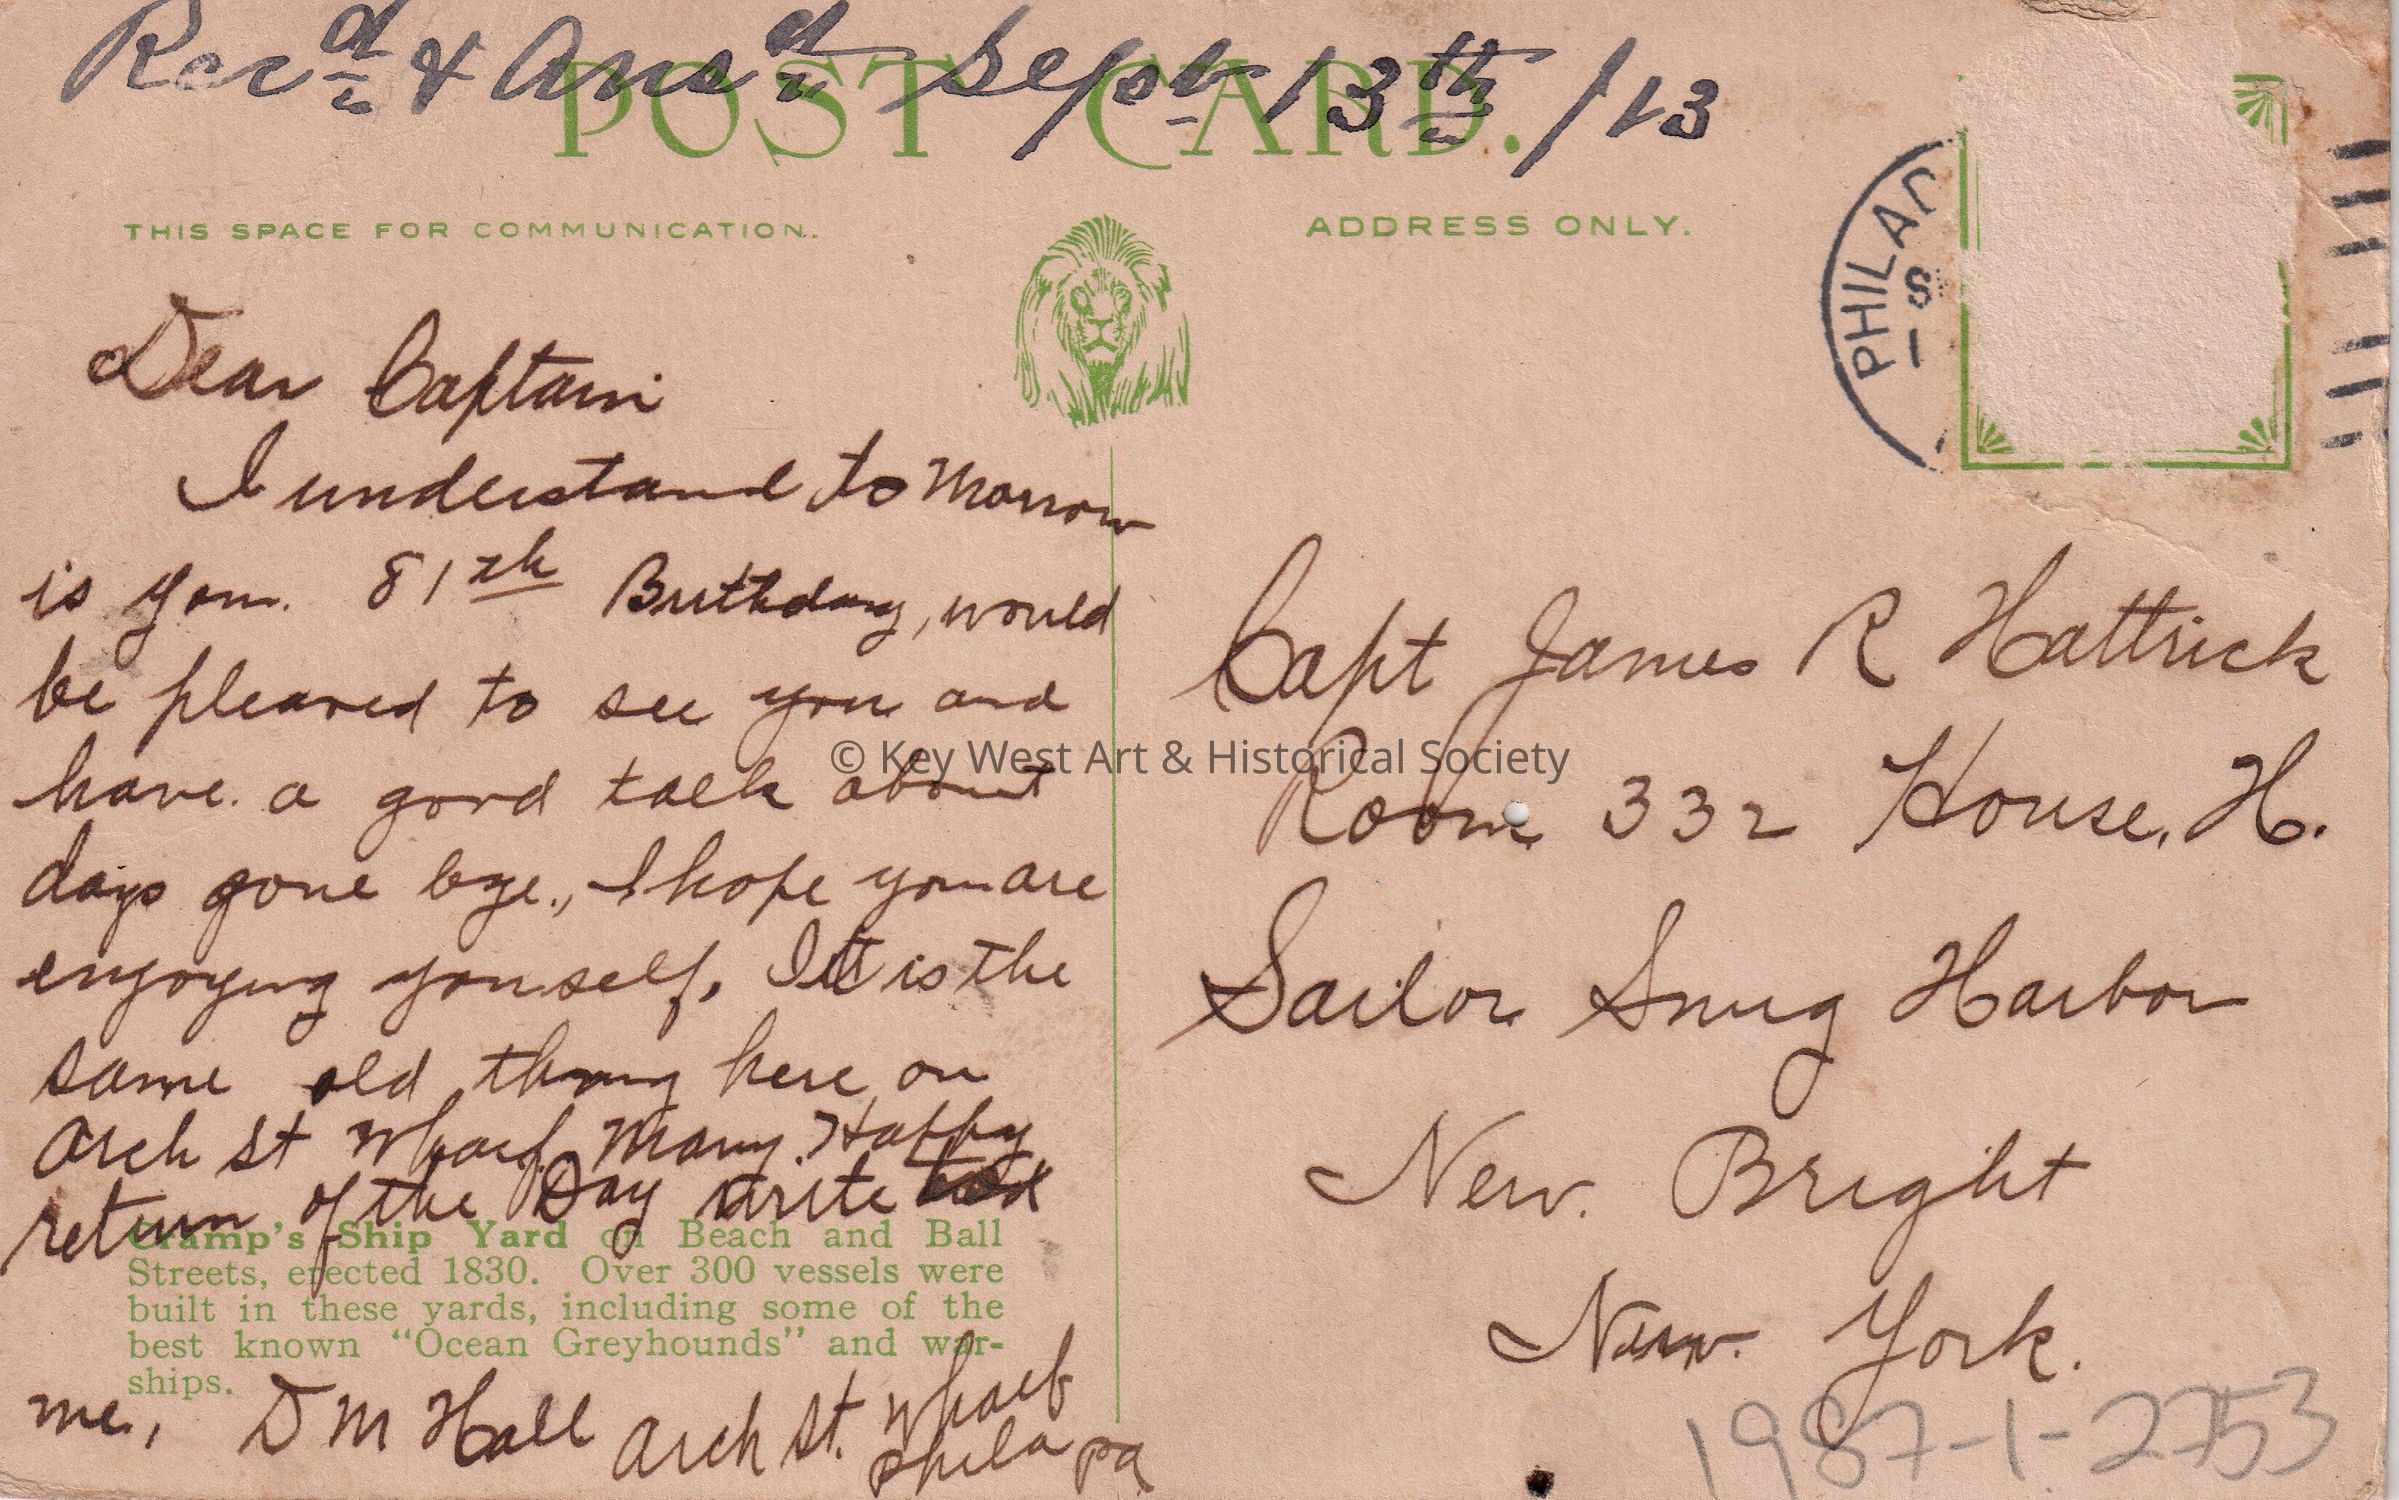 Recd & Ansd Sept 13th /13
POST CARD.
THIS SPACE FOR COMMUNICATION.
ADDRESS ONLY.
PHILAD
S
1
Dear Captain
I understand to Morrow
is your 81th Birthday, would
be pleased to see you and
have a good talk about
days gone bye., I hope you are
enjoying yourself. It is the
same old thing here on
Arch St Wharf. Many Happy
return of the Day write
Cramp's Ship Yard on Beach and Ball
Streets, erected 1830. Over 300 vessels were
built in these yards, including some of the
best known "Ocean Greyhounds" and war-
ships.
me, D M Hall Arch St. Wharf
Phila Pa
Capt James R Hattrick
Room 332 House. H.
Sailor Snug Harbor
New. Bright
New. York.
1987-1-2753
© Key West Art & Historical Society